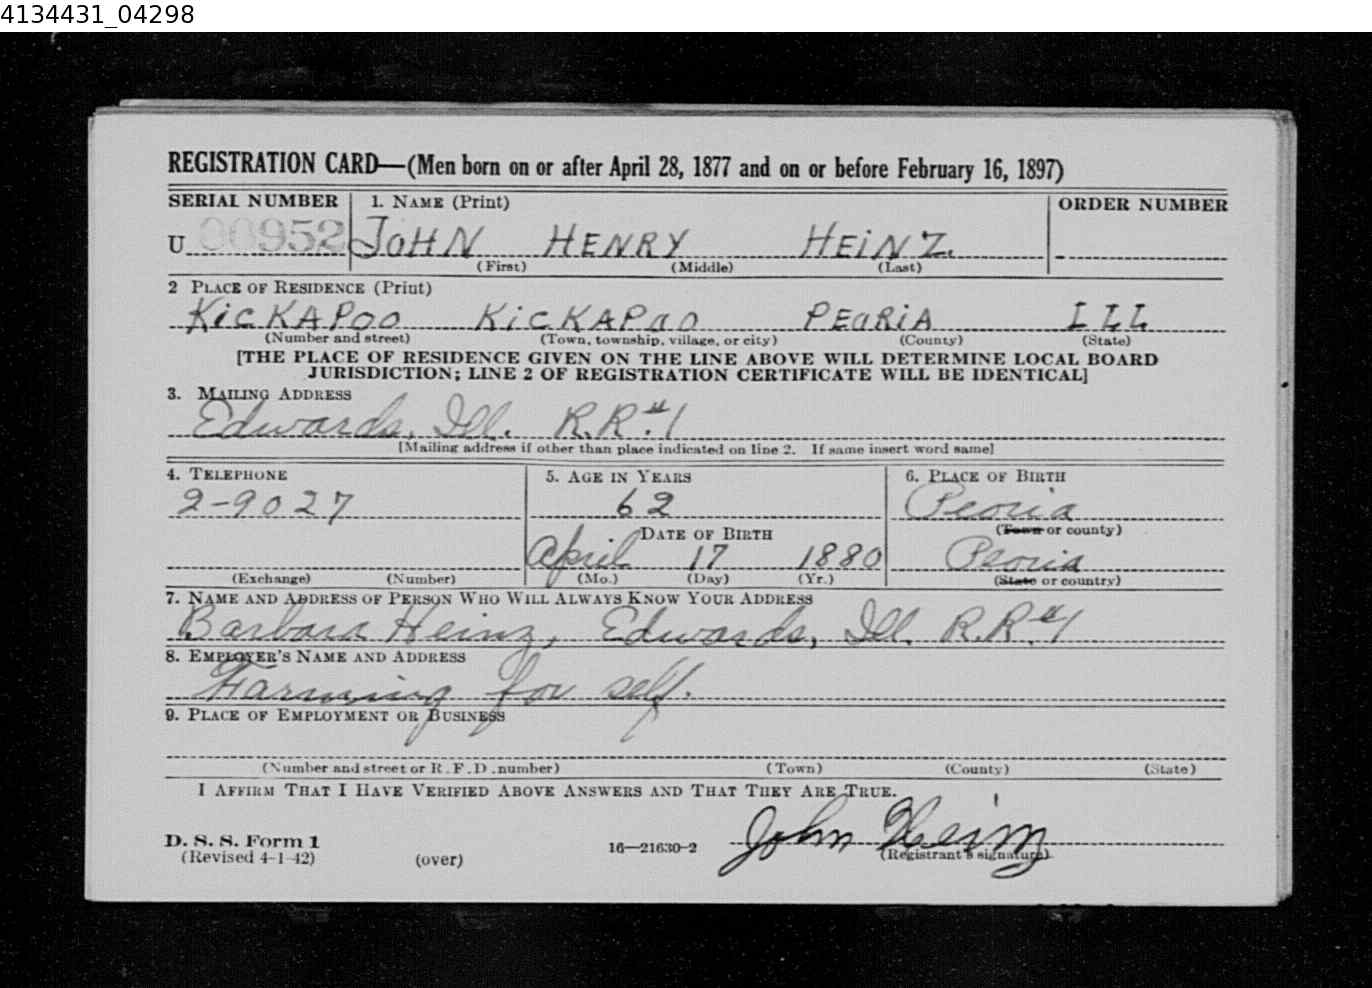 4134431_04298
REGISTRATION CARD—(Men born on or after April 28, 1877 and on or before February 16, 1897)
SERIAL NUMBER 1. NAME (Print) ORDER NUMBER
U 00952 JOHN HENRY HEINZ
(First) (Middle) (Last)
2 PLACE OF RESIDENCE (Print)
KICKAPOO KICKAPOO PEORIA ILL
(Number and street) (Town, township, village, or city) (County) (State)
[THE PLACE OF RESIDENCE GIVEN ON THE LINE ABOVE WILL DETERMINE LOCAL BOARD
JURISDICTION; LINE 2 OF REGISTRATION CERTIFICATE WILL BE IDENTICAL]
3. MAILING ADDRESS
Edwards, Ill. R.R.#1
[Mailing address if other than place indicated on line 2. If same insert word same]
4. TELEPHONE 5. AGE IN YEARS 6. PLACE OF BIRTH
2-9027 62 Peoria
DATE OF BIRTH (Town or county)
April 17 1880 Peoria
(Exchange) (Number) (Mo.) (Day) (Yr.) (State or country)
7. NAME AND ADDRESS OF PERSON WHO WILL ALWAYS KNOW YOUR ADDRESS
Barbara Heinz, Edwards, Ill. R.R.#1
8. EMPLOYER'S NAME AND ADDRESS
Farming for self.
9. PLACE OF EMPLOYMENT OR BUSINESS
(Number and street or R.F.D. number) (Town) (County) (State)
I AFFIRM THAT I HAVE VERIFIED ABOVE ANSWERS AND THAT THEY ARE TRUE.
John Heinz
D. S. S. Form 1
(Revised 4-1-42) (over) 16—21630-2 (Registrant's signature)